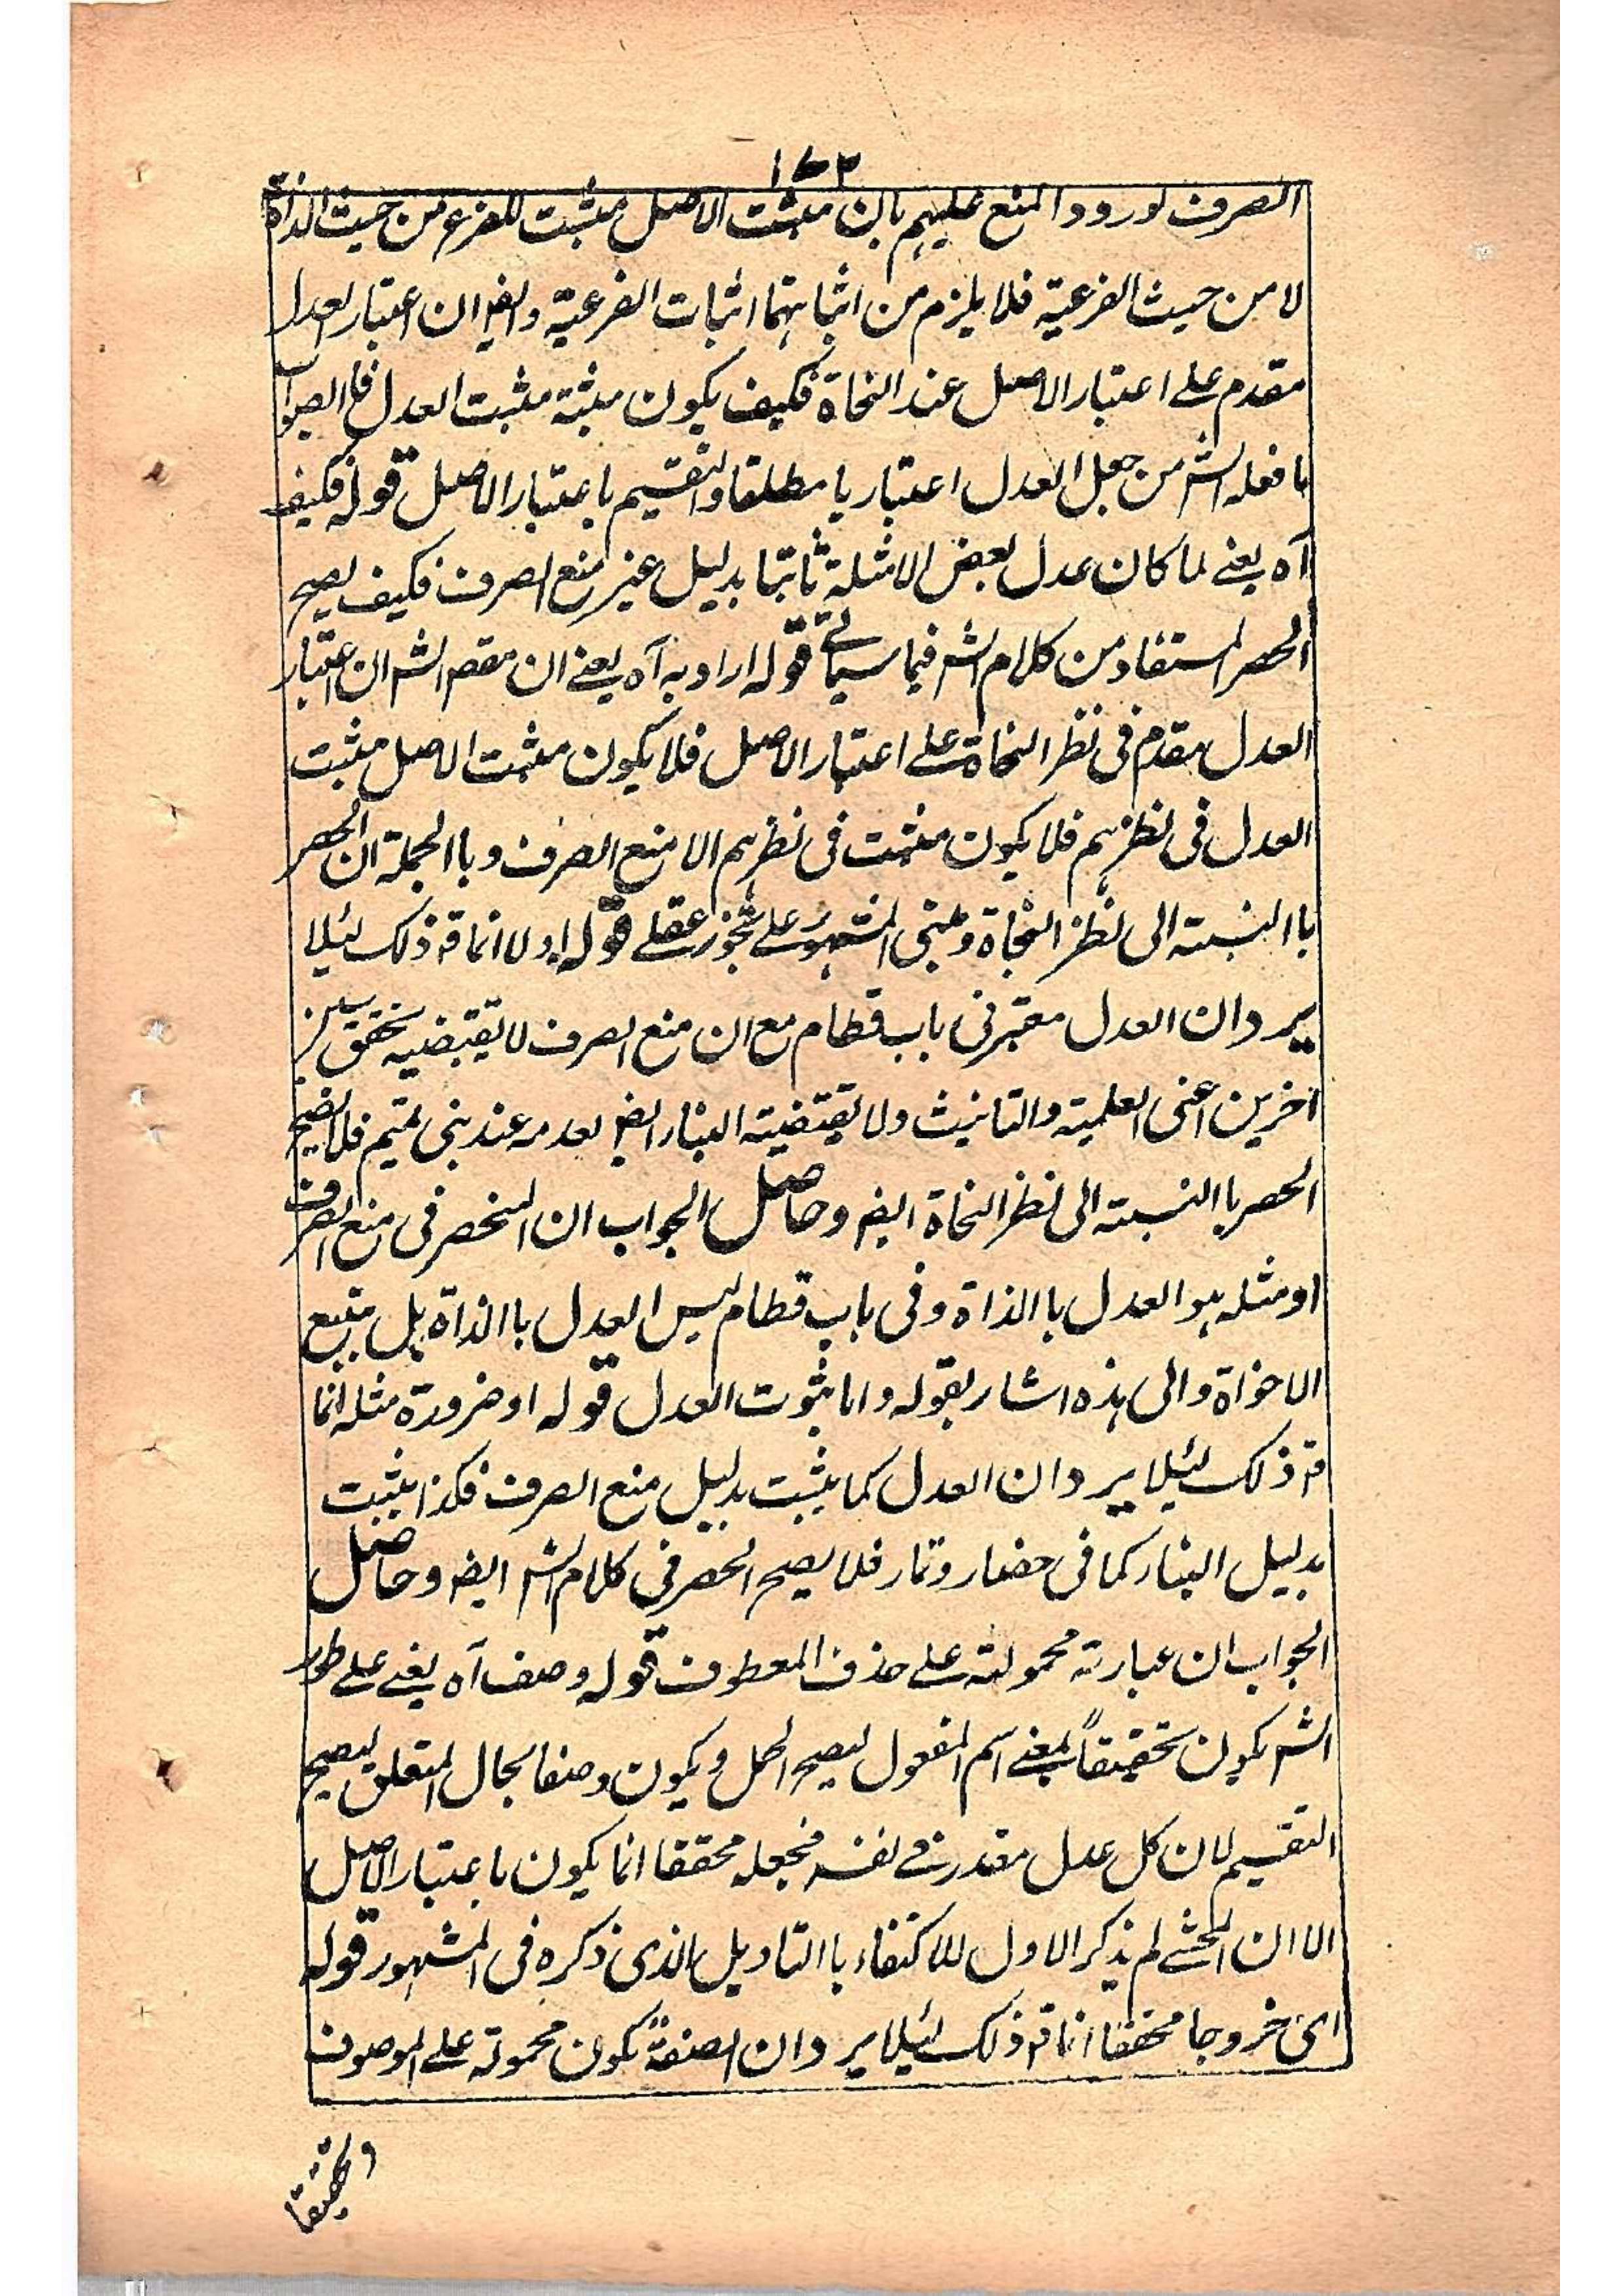 ١٧٣
الصرف لورود المنع عليهم بان مثبت الاصل مثبت للفرع من حيث الذاة
لا من حيث الفرعية فلا يلزم من اثباتهما اثبات الفرعية وايضا ان اعتبار العدل
مقدم على اعتبار الاصل عند النحاة فكيف يكون مثبته مثبت العدل فالصواب
ما فعله الشر من جعل العدل اعتباريا مطلقا والتقسيم باعتبار الاصل قوله فكيف
آه يعنے لما كان عدل بعض الامثلة ثابتا بدليل غير منع الصرف فكيف يصح
الحصر المستفاد من كلام الشر فيما سيأتے قوله اراد به آه يعنے ان مقصر الشر ان اعتبار
العدل مقدم فى نظر النحاة على اعتبار الاصل فلا يكون مثبت الاصل مثبت
العدل فى نظرهم فلا يكون مثبت فى نظرهم الا منع الصرف وباالجملة ان الحصر
باالنسبته الى نظر النحاة ومبنى المشهور على تجوز عقلے قوله اولا انما قه ذلك لئيلا
يرد ان العدل معتبر فى باب قطام مع ان منع الصرف لا يقتضيه لتحقق سببين
اخرين اعنى العلمية والتانيث ولا يقتضيته البناء ايضا لعدمه عند بنى تميم فلا يصح
الحصر باالنسبته الى نظر النحاة ايضا وحاصل الجواب ان المنحصر فى منع الصرف
او مثله هو العدل باالذاة وفى باب قطام ليس العدل باالذاة بل بتبع
الاخواة والى هذه اشار بقوله واما ثبوت العدل قوله او ضرورة مثله انما
قه ذلك لئيلا يرد ان العدل كما يثبت بدليل منع الصرف فكذا يثبت
بدليل البناء كما فى حضار وتمار فلا يصح الحصر فى كلام الشر ايضا وحاصل
الجواب ان عبارته محمولته على حذف المعطوف قوله وصف آه يعنے على طور
الشر يكون تحقيقاً بمعنے اسم المفعول ليصح الحمل ويكون وصفا بحال المتعلق ليصح
التقسيم لان كل عدل مقدر فے نفسه فجعله محققا انما يكون باعتبار الاصل
الا ان المحشے لم يذكر الاول للاكتفاء باالتاويل الذى ذكره فى المشهور قوله
اى خروجا محققا انما قه ذلك لئيلا يرد ان الصفةً تكون محمولة على الموصوف
وتحقيقا